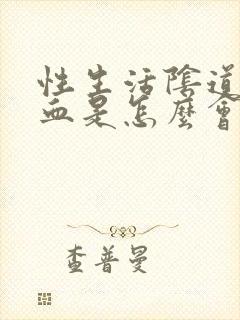 性生活陰道
血是怎麼會
查普曼